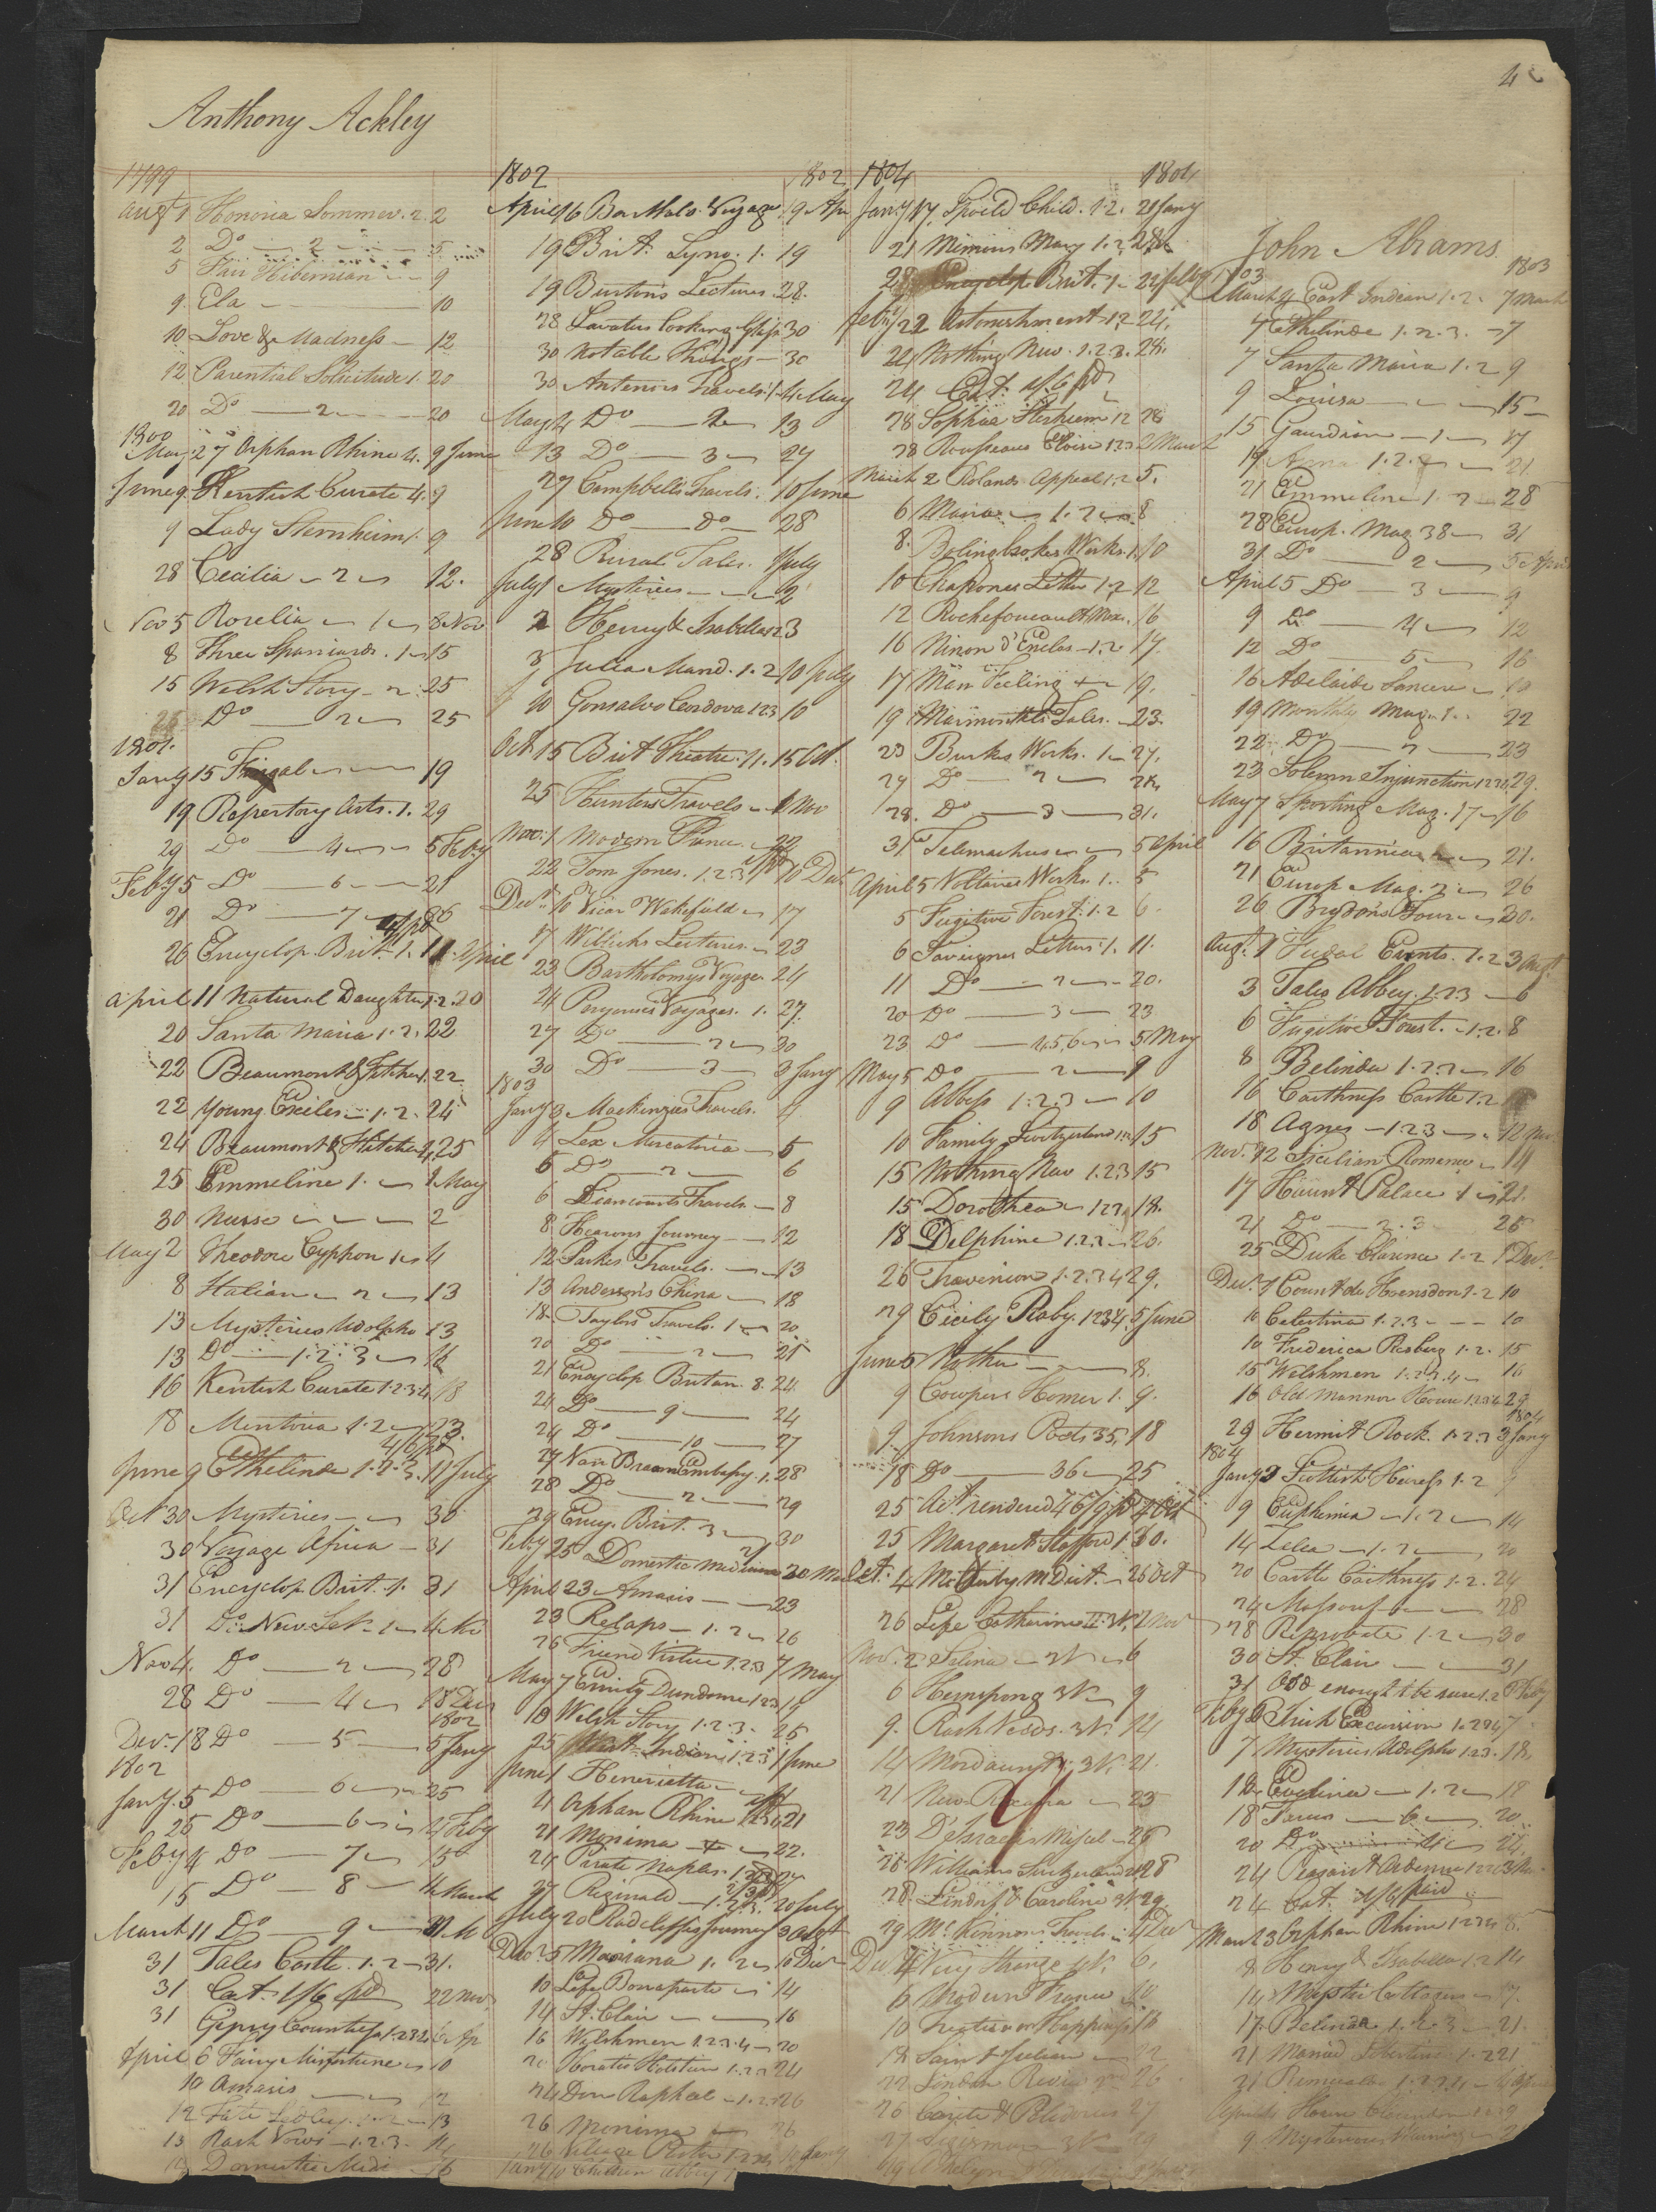 Anthony Ackley
1799
Augt 1 Honoria Sommer. 2. 2
2 Do 2 5
5 Fair Hibernian 9
9. Ela 10
10 Love & Madness 12
12 Parential Solicitude 1. 20
20 Do 2 20
1800
May 27 Orphan Rhine 4. 9 June
June 9. Kentish Curate 4. 9
9 Lady Sternheim 1. 9
28 Cecilia 2 12.
Nov 5 Roselia 1 8 Nov
8 Three Spaniards. 1 15
15 Welsh Story 2. 25
25 Do 2 25
1801.
Jany 15 Frugal 19
19 Repertory Arts. 1. 29
29 Do 4 5 Feby
Feby 5 Do 6 21
21 Do 7 26
26 Encyclop. Brit. 1. 11 April
April 11 Natural Daughter 1.2. 20
20 Santa Maria 1.2. 22
22 Beaumont & Fletcher 1. 22
22 Young Exiles 1.2. 24
24 Beaumont & Fletcher 4. 25
25 Emmeline 1. 1 May
30 Nurse 2
May 2 Theodore Cyphon 1 4
8 Italian 2 13
13 Mysteries Udolpho 13
13 Do 1.2.3 16
16 Kentish Curate 1.2.3.4 18
18 Mentoria 1.2 23.
4/6 pd
June 9 Ethelinde 1.2.3. 11 July
Oct 30 Mysteries 30
30 Voyage Africa 31
31 Encyclop. Brit. 1. 31
31 Do New Set 1 4 No
Nov 4. Do 2 28
28 Do 4 18 Decr
1802
Decr 18 Do 5 5 Jany
1802
Jany. 5 Do 6 25
25 Do 6 4 Feby
Feby 4 Do 7 15
15 Do 8 4 March
March 11 Do 9 31 M
31 Tales Castle. 1.2 31.
31 Cat. 1/6 pd 22 Nov
31 Gipsy Countess 1.2.3.4 6 Ap
April 6 Fairy Misfortune 10
10 Amasis 12
12 Fate Sedley 1.2 13
13 Rash Vows 1.2.3. 14
14 Domestic Medi 16
1802 1802
April 16 Bar Malo. Voyage 19 Apr
19 Brit. Lyno. 1. 19
19 Burton's Lectures 28.
28 Lavater Looking Glass 30
30 Notable Things 30
30 Antenors Travels. 1 4 May
May 4 Do 2 13
13 Do 3 27
27 Campbells Travels. 10 June
June 10 Do Do 28
28 Rural Tales. 1 July
July 1 Mysteries 2
2 Henry & Isabella 1.2 3
3 Julia Mand. 1.2 10 July
10 Gonsalvo Cordova 1.2.3 10
Oct 15 Brit Theatre. 11. 15 Oct.
25 Hunters Travels 1 Nov
Nov. 1 Modern France 22
22 Tom Jones. 1.2.3 10 Decr
Decr. 10 Vicar Wakefield 17
17 Willichs Lectures. 23
23 Bartholomys Voyage 24
24 Perouses Voyages. 1. 27.
27 Do 2 30
30 Do 3 3 Jany
1803
Jany 3 Mackenzies Travels. 4
4 Lex Mercatoria 5
5 Do 2 6
6 Liancourts Travels 8
8 Hearons Journey 12
12 Parkes Travels. 13
13 Anderson's China 18
18. Taylors Travels. 1 20
20 Do 2 21
21 Encyclop Britan. 8. 24
24 Do 9 24
24 Do 10 27
27 Van Braam Embassy. 1. 28
28 Do 2 29
29 Ency. Brit. 3 30
Feby 25 Domestic Medicine 20 Mar
April 23 Amasis 23
23 Relaps 1.2 26
26 Friend Virtue 1.2.3 7 May
May 7 Emily Dundorne 1.2.3 19
18 Welsh Story 1.2.3. 25
25 East Indian 1.2.3 1 June
June 1 Henrietta 4
4 Orphan Rhine 21
21 Monima 22.
24 Pirate Naples. 1.2.3 27
27 Reginald 1.2.3. 20 July
July 20 Radcliffes Journey 3 Augt
Decr 5 Mariana 1.2 10 Decr
10 Life Bonaparte 14
14 St. Clair 16
16 Welshmen 1.2.3.4 20
20 Horatio Holstein 1.2.3 24
24 Don Raphael 1.2.3 26
26 Monima 26
26 Village Pastor
Jany 10 Children Abbey
1804 1804
Jany 17. Spoild Child. 1.2. 21 Jany
21 Memoirs Mary 1.2 28
28 Encyclop Brit. 1 22 Feby
Feby 22 Astonishment 1.2 24.
24 Nothing New. 1.2.3. 28.
24 Cat. 1/6 pd
28 Sophia Sternheim 1.2 28
28 Rousseaus Eloisa 1.2.3 2 March
March 2 Rolands Appeal 1.2 5.
6 Maria 1.2 8
8. Bolingbrokes Works. 1. 10
10 Chapones Letters 1.2 12
12 Rochefoucault Max. 16
16 Ninon d'Enclos 1.2 17.
17 Man Feeling 19.
19 Marmontels Tales. 23.
23 Burkes Works. 1 27.
27 Do 2 28
28. Do 3 31.
31 Telemachus 5 April
April 5 Voltaires Works. 1. 5
5 Fugitive Forest. 1.2 6.
6 Savignes Letters. 1. 11.
11 Do 2 20.
20 Do 3 23
23 Do 4.5.6 5 May
May 5 Do 2 9
9 Abbess 1.2.3 10
10 Family Switzerland 1.2 15
15 Nothing New 1.2.3 15
15 Dorothea 1.2.3 18.
18 Delphine 1.2.3 26.
26 Travenion 1.2.3.4 29.
29 Cicily Raby. 1.2.3.4. 5 June
June 5 Mother 8.
9 Cowpers Homer 1. 9.
9. Johnsons Poets 35. 18
18 Do 36 25
25 Act. rendered 46/9 pd 4 Oct
25 Margaret Stafford 1 30.
Oct. 4
26 Life Catharine II. 3 V. 2 Nov
Nov. 2 Selina 3V 6
6 Hermsprong 3V. 9
9. Rash Vows. 3V. 14
14 Mordaunt. 3V. 21.
21 New 23
23 D'Israelis Miscel 26
26. Williams Switzerland 28
28. Lindorf & Caroline 3V. 29
29 McKinnons Travels 4 Decr
Decr 4 Very Strange 4V. 6.
6 Modern France 10
10 Treatise on Happiness 18
18 Saint Julian 22
22 London Review 26
26 Carite & Polidorus 27
27 Sigismar 3V 29
John Abrams
1803 1803
March 4 East Indian 1.2. 7 March
7 Ethelinde 1.2.3. 7
7 Santa Maria 1.2 9
9 Louisa 15
15 Gaurdian 1 17
17 Anna 1.2. 21
21 Emmeline 1.2 28
28 Europ. Mag. 38 31
31. Do 2 5 April
April 5 Do 3 9
9 Do 4 12
12 Do 5 16
16 Adelaide Sancere 19
19 Monthly Mag. 1. 22
22 Do 2 23
23 Solemn Injunction 1.2.3.4. 29.
May 7 Sporting Mag. 17 16
16 Britannica 21.
21 Europ. Mag. 2 26
26 Brydon's Tour 30.
Augt. 1 Fudal Events. 1.2 3 Augt
3 Tales Abbey. 1.2.3 6
6 Fugitive Forest. 1.2. 8
8 Belinda 1.2.3 16
16 Caithness Castle 1.2
18 Agnes 1.2.3 12 Nov.
Nov. 12 Sicilian Romance 14
17 Haunt Palace 1 21.
21 Do 2.3 25
25 Duke Clarence 1.2 1 Decr
Decr. 1 Count de Hoensdon 1.2 10
10 Celestina 1.2.3 10
10 Frederica Risberg 1.2. 15
15 Welshmen 1.2.3.4 16
16 Old Mannor House 1.2.3.4 29
1804
29 Hermit Rock. 1.2.3 3 Jany
1804
Jany 3 Scottish Heiress 1.2 9
9 Euphemia 1.2 14
14 Zelea 1.2 20
20 Castle Caithness 1.2. 24
24 Massouf 28
28 Reprobate 1.2 30
30 St. Clair 31
31 Odd enough to be sure 1.2 Feby
Feby Irish Excursion 1.2.3.4 7
7 Mysteries Udolpho 1.2.3. 18.
18. Evelina 1.2 18
18 6 20
20 Do 4 24.
24 Peasant Ardenne 1.2.3 3 Mar
24 Cat. 1/6 paid
March 3 Orphan Rhine 1.2.3.4 8.
8 Henry & Isabella 1.2 14
14 Mystic Cottager 17.
17. Belinda 1.2.3 21.
21 Married Libertine 1.2 21
9 Mysterious Warning